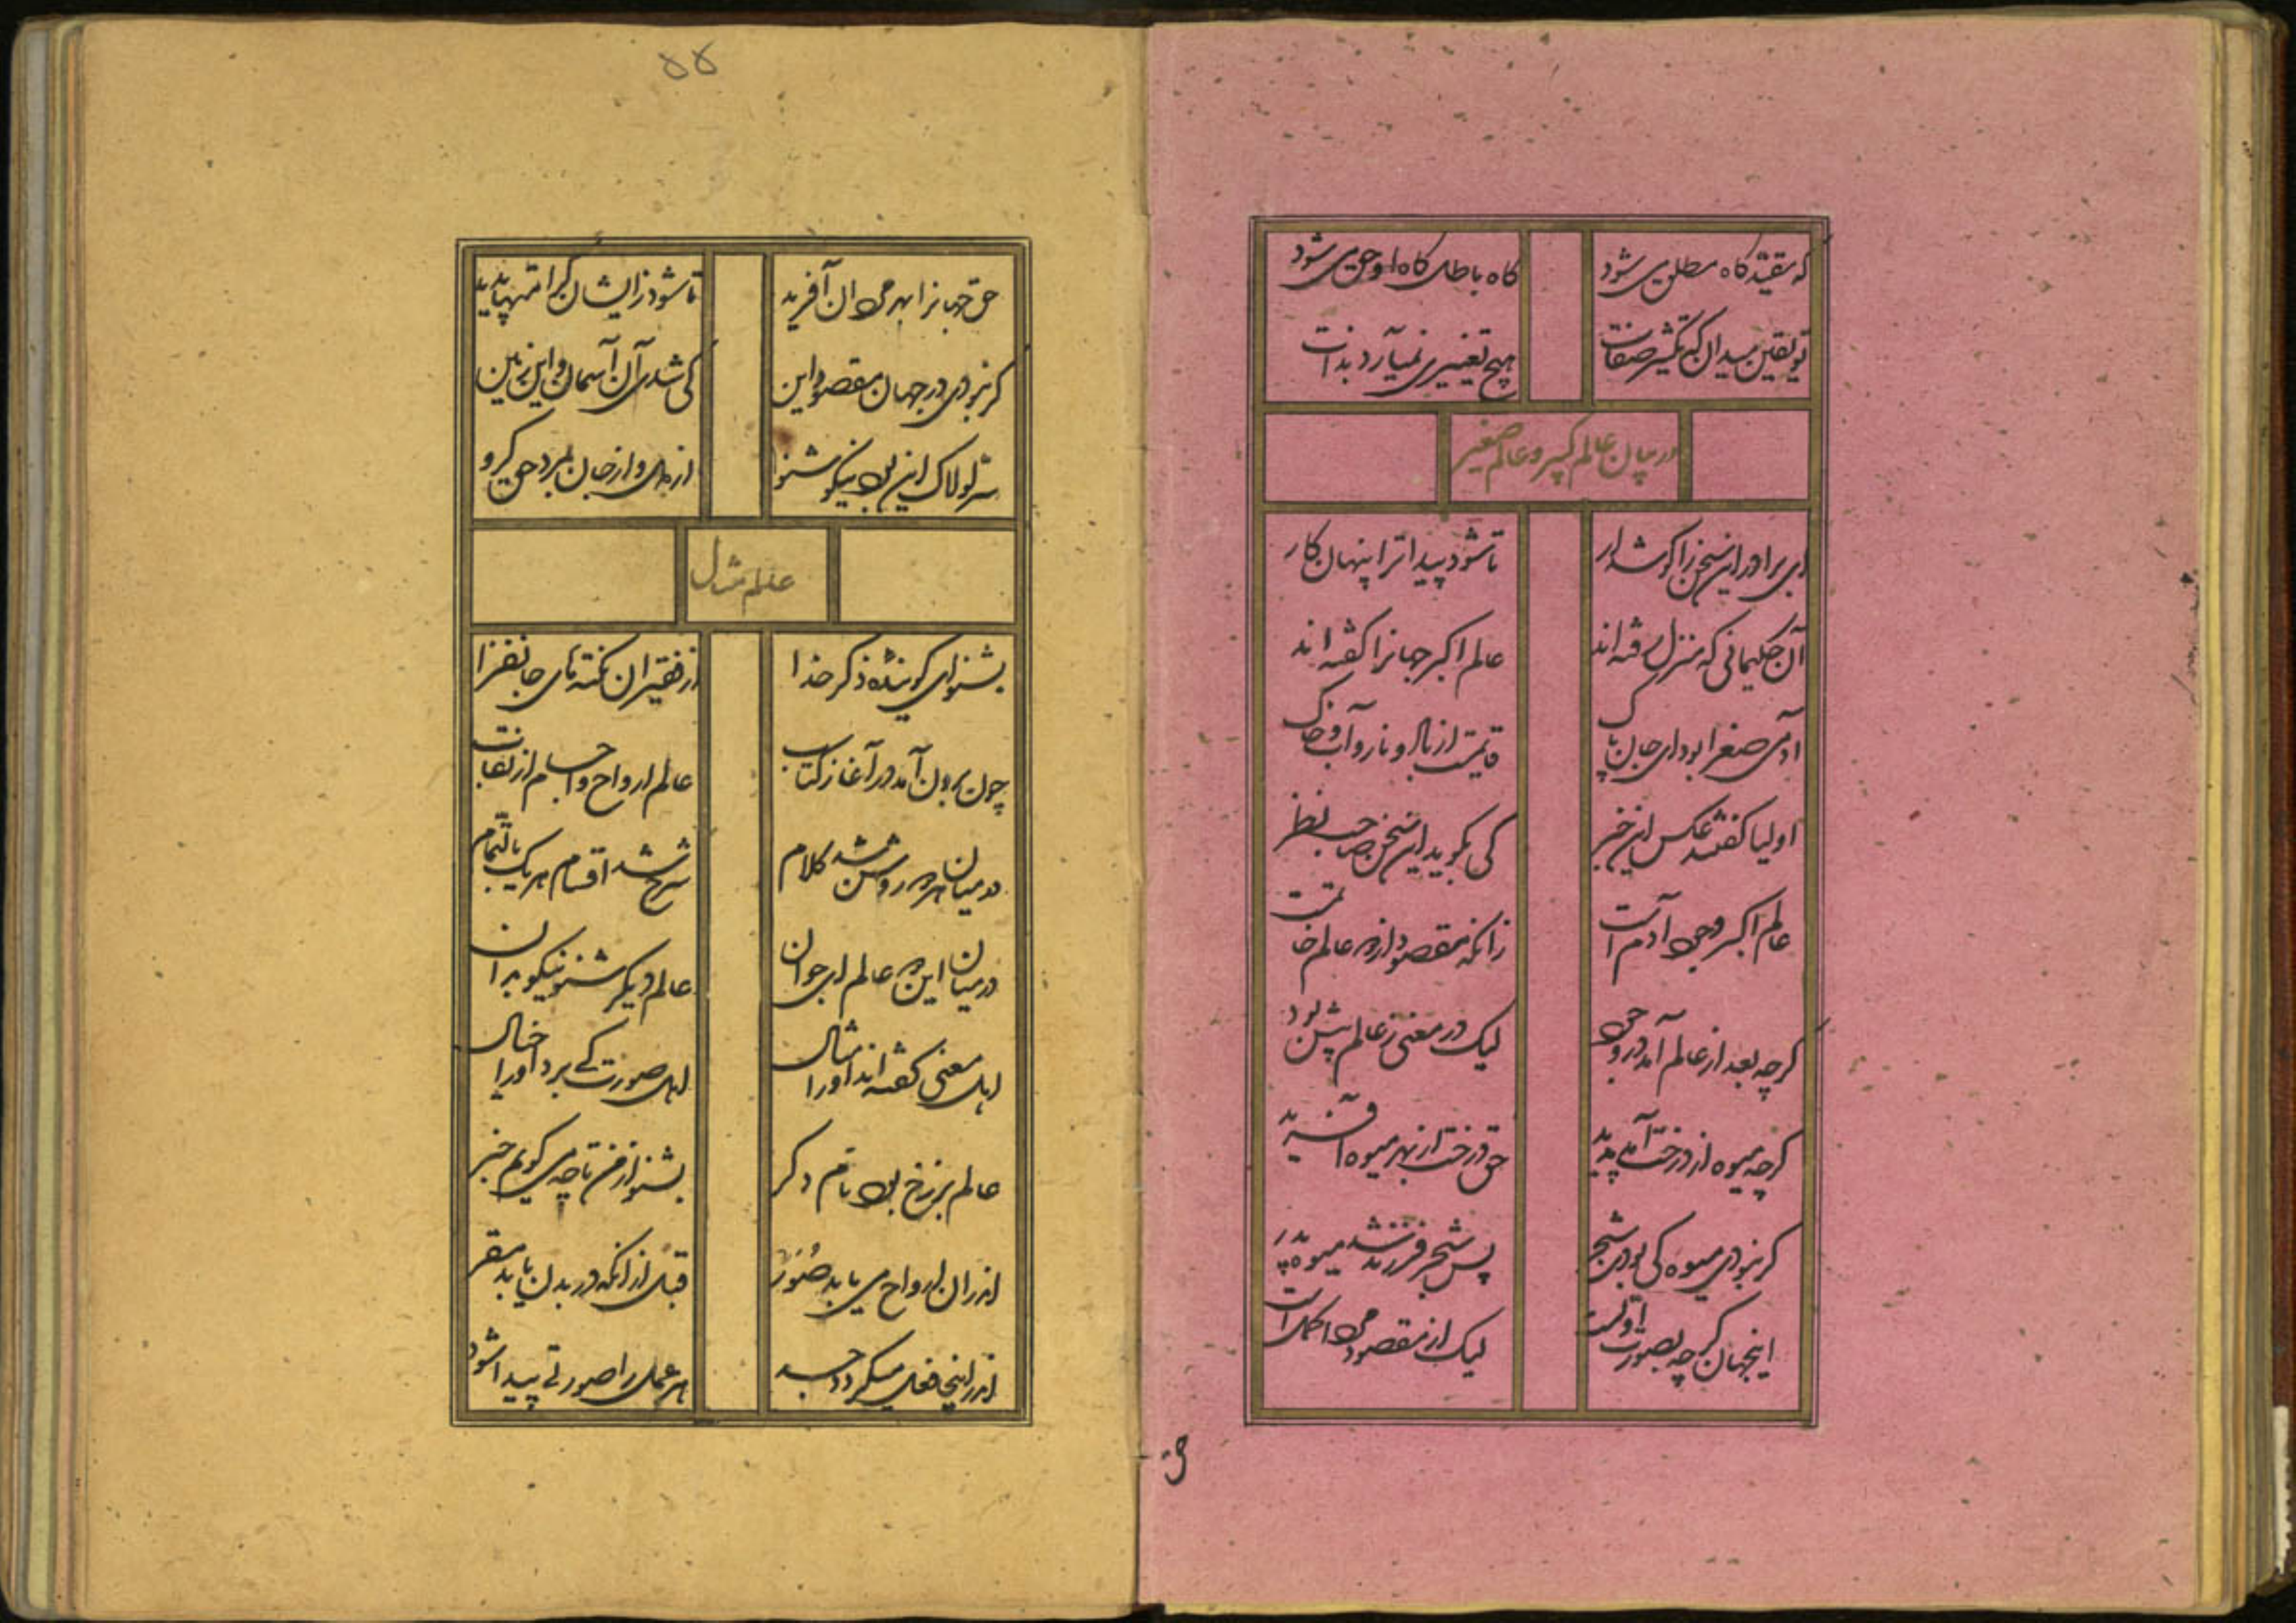 که مقید گاه مطلق می شود گاه باطل گاه او حق می شود
تو یقین میدان که تکثیر صفات هیچ تغییری نمیآرد بذات
در بیان عالم کبیر و عالم صغیر
ای برادر این سخن را گوش دار تا شود پیدا ترا پنهان کار
آن حکیمانی که منزل رفته اند عالم اکبر جهانرا گفته اند
آدمی صغرا بود ای جان پاک قایمست از باد و نار و آب و خاک
اولیا گفتند عکس این خبر کی بگوید این سخن صاحب نظر
عالم اکبر وجود آدم است زانکه مقصود از همه عالم
گرچه بعد از عالم آمد در وجود لیک در معنی ز عالم پیش بود
گرچه میوه از درخت آمد پدید حق درخت از بهر میوه آفرید
گر نبودی میوه کی بودی شجر پس شجر فرزند شد میوه پدر
اینجهان گرچه بصورت اولست لیک از مقصود خود اکمل است
۵۵
حق جهانرا بهر مردان آفرید تا شود ز ایشان کرامتها پدید
گر نبودی در جهان مقصود این کی شدی آن آسمان و این زمین
سر لولاک این بود نیکو شنو از دل و از جان بمرد حق گرو
عالم مثال
بشنو ای گوینده ذکر خدا از فقیر آن نکته های جانفزا
چون برون آمد در آغاز کتاب عالم ارواح و اجسام از نقاب
در میان هر دو روشن شد کلام شرح شد اقسام هر یک بالتمام
در میان این دو عالم ای جوان عالم دیگر شنو نیکو بدان
اهل معنی گفته اند او را مثال اهل صورت کی برد او را خیال
عالم برزخ بود نام دگر بشنو از من تا چه می گویم خبر
اندران ارواح می یابد صور قبل از آنکه در بدن یابد مقر
اندر اینجا فعل میگردد جسد هر عمل را صورتی پیدا شود